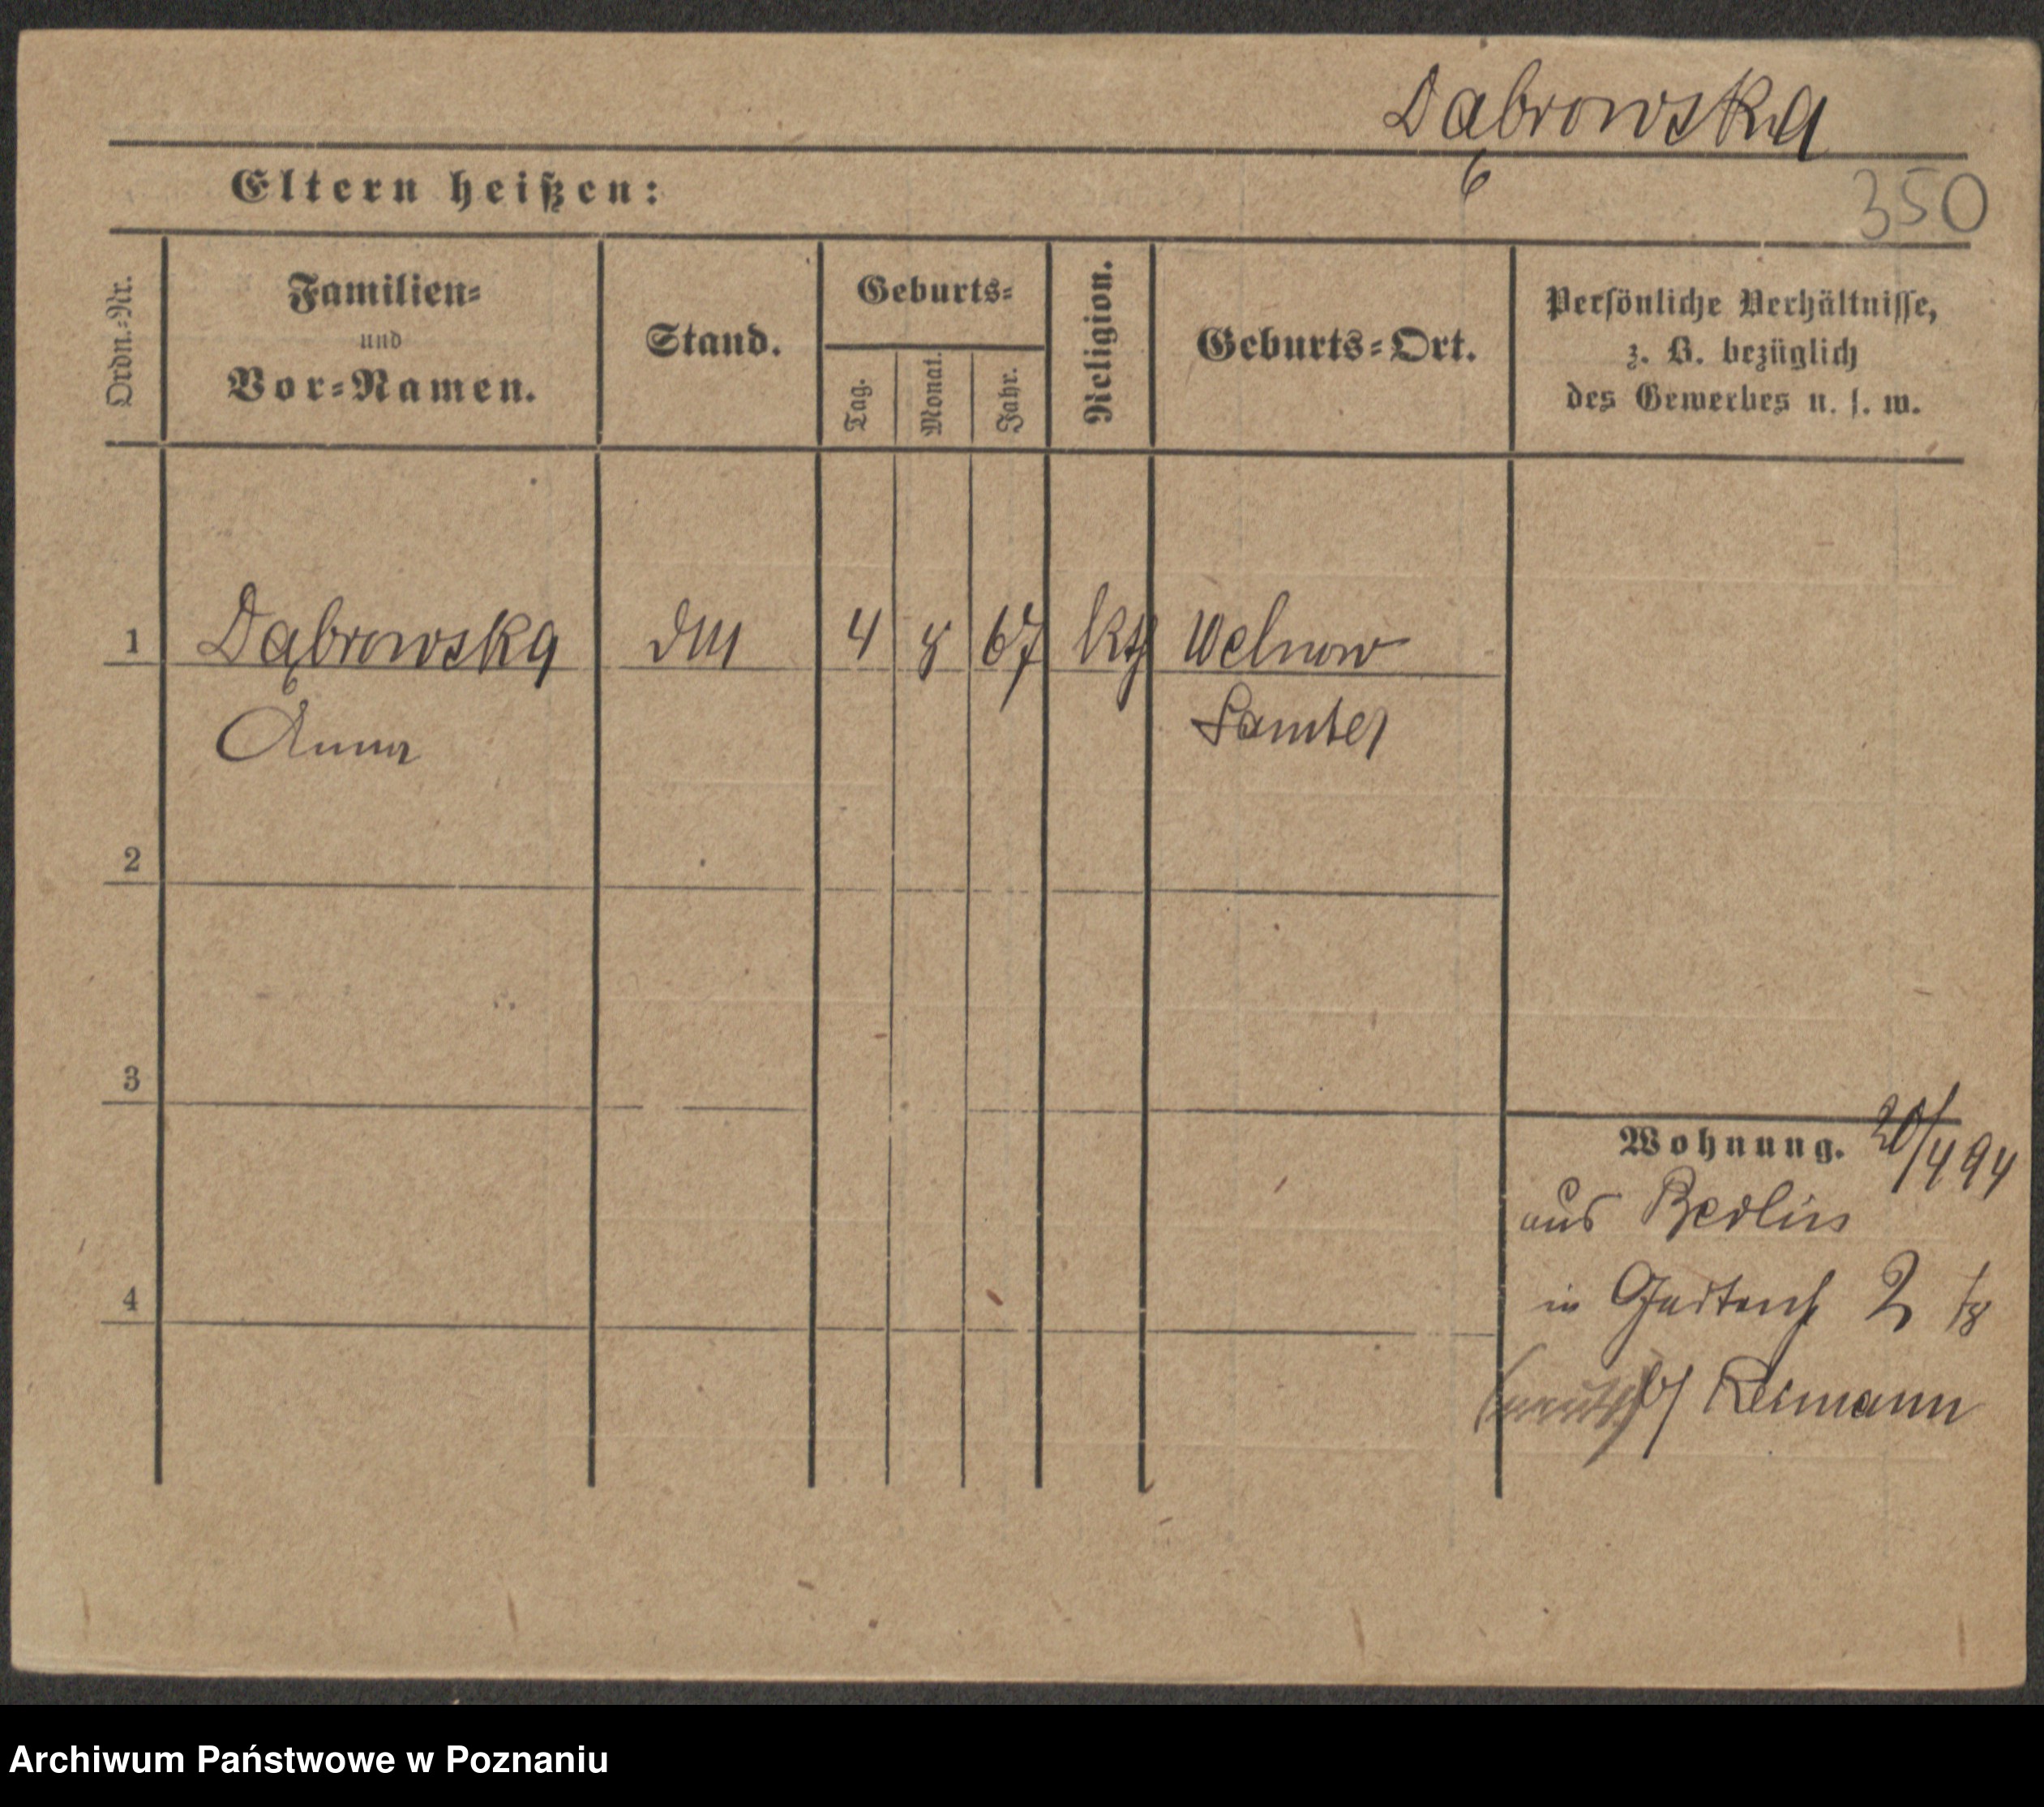 Dąbrowska
350
Eltern heißen:
Ordn.=Nr.
Familien=
und
Vor=Namen.
Stand.
Geburts=
Tag.
Monat.
Jahr.
Religion.
Geburts=Ort.
Persönliche Verhältnisse,
z. B. bezüglich
des Gewerbes u. s. w.
1 Dąbrowska 4 8 67 kth Welnow
Anna Samter
2
3
4
Wohnung. 20/4 94
aus Berlin
in 2
b/ Reimann
Archiwum Państwowe w Poznaniu